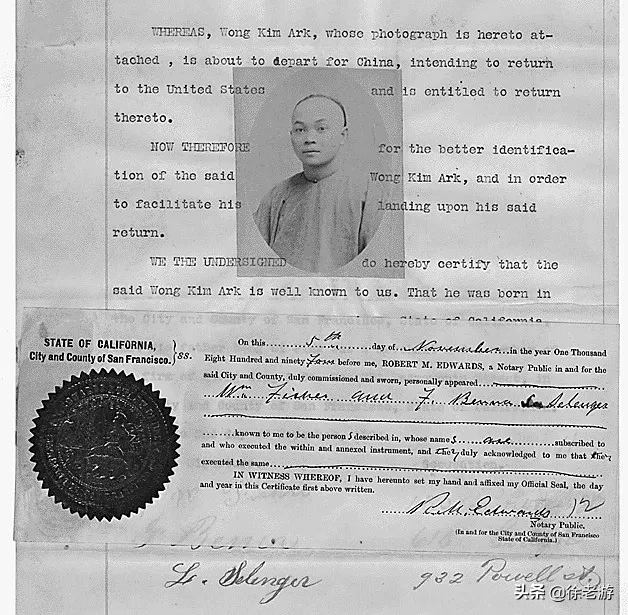 WHEREAS, Wong Kim Ark, whose photograph is hereto at-
tached , is about to depart for China, intending to return
to the United States and is entitled to return
thereto.
NOW THEREFORE for the better identifica-
tion of the said Wong Kim Ark, and in order
to facilitate his landing upon his said
return.
WE THE UNDERSIGNED do hereby certify that the
said Wong Kim Ark is well known to us. That he was born in
the City and County of San Francisco, State of California,
STATE OF CALIFORNIA,
City and County of San Francisco. } ss.
On this 5th day of November in the year One Thousand
Eight Hundred and ninety Four before me, ROBERT M. EDWARDS, a Notary Public in and for the
said City and County, duly commissioned and sworn, personally appeared
Wm Fisher and F. Benna L. Selenger
known to me to be the persons described in, whose names are subscribed to
and who executed the within and annexed instrument, and they duly acknowledged to me that they
executed the same
IN WITNESS WHEREOF, I have hereunto set my hand and affixed my Official Seal, the day
and year in this Certificate first above written.
R. M. Edwards
Notary Public.
(In and for the City and County of San Francisco
State of California.)
L. Selenger 932 Powell St.
头条 @徐老游